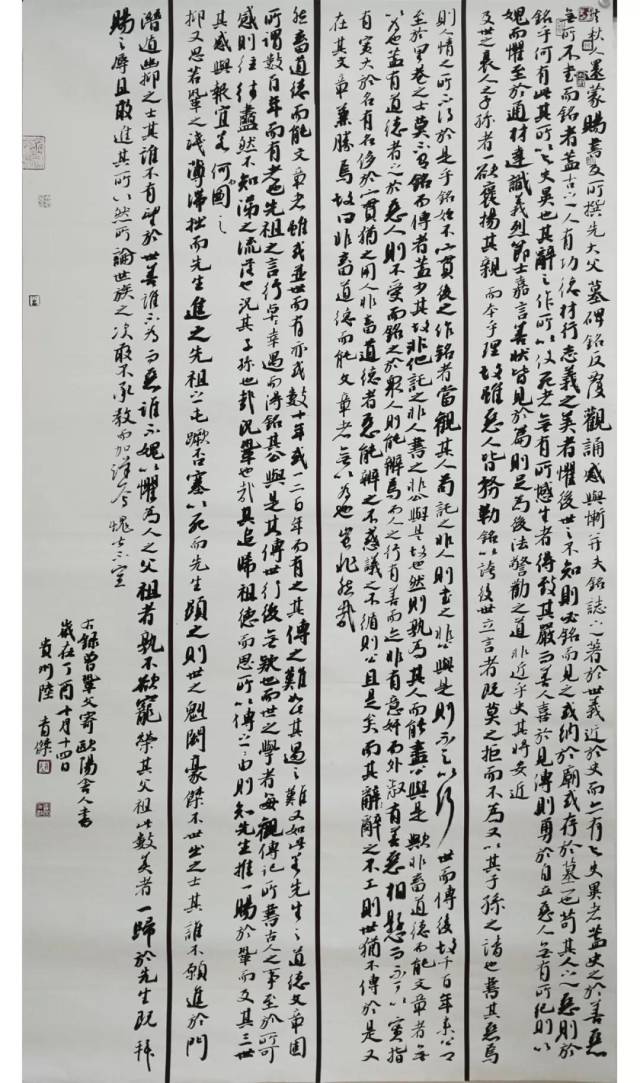 秋人還蒙賜書及所撰先大父墓碑銘反覆觀誦感與慚并夫銘誌之著於世義近於史而亦有與史異者蓋史之於善惡
無所不書而銘者蓋古之人有功德材行志義之美者懼後世之不知則必銘而見之或納於廟或存於墓一也苟其人之惡則於
銘乎何有此其所以與史異也其辭之作所以使死者無有所憾生者得致其嚴而善人喜於見傳則勇於自立惡人無有所紀則以
媿而懼至於通材達識義烈節士嘉言善狀皆見於篇則足為後法警勸之道非近乎史其將安近
及世之衰人之子孫者一欲襃揚其親而本乎理故雖惡人皆務勒銘以誇後世立言者既莫之拒而不為又以其子孫之請也書其惡焉
則人情之所不得於是乎銘始不實後之作銘者當觀其人苟託之非人則書之非公與是則不足以行世而傳後故千百年來公
至於里巷之士莫不有銘而傳者蓋少其故非他託之非人書之非公與是故也然則孰為其人而能盡公與是歟非畜道德而能文章者無
以為也蓋有道德者之於惡人則不受而銘之於衆人則能辨焉而人之行有善而迹非有意奸而外淑有善惡相懸而不可以實指
有實大於名有名侈於實猶之用人非畜道德者惡能辨之不惑議之不徇則公且是矣而其辭之不工則世猶不傳於是又
在其文章兼勝焉故曰非畜道德而能文章者無以為也豈非然哉
然畜道德而能文章者雖或並世而有亦或數十年或一二百年而有之其傳之難如此其遇之難又如此若先生之道德文章固
所謂數百年而有者也先祖之言行卓卓幸遇而得銘其公與是其傳世行後無疑也而世之學者每觀傳記所書古人之事至於所可
感則往往衋然不知涕之流落也況其子孫也哉況鞏也哉其追睎祖德而思所以傳之之由則知先生推一賜於鞏而及其三世
其感與報宜若何而圖之
抑又思若鞏之淺薄滯拙而先生進之先祖之屯蹶否塞以死而先生顯之則世之魁閎豪傑不世出之士其誰不願進於門
潛遁幽抑之士其誰不有望於世善誰不為而惡誰不媿以懼為人之父祖者孰不欲寵榮其父祖此數美者一歸於先生既拜
賜之辱且敢進其所以然所諭世族之次敢不承教而加詳焉愧甚不宣
右錄曾鞏文寄歐陽舍人書
歲在丁酉十月十四日
貴州陸青傑